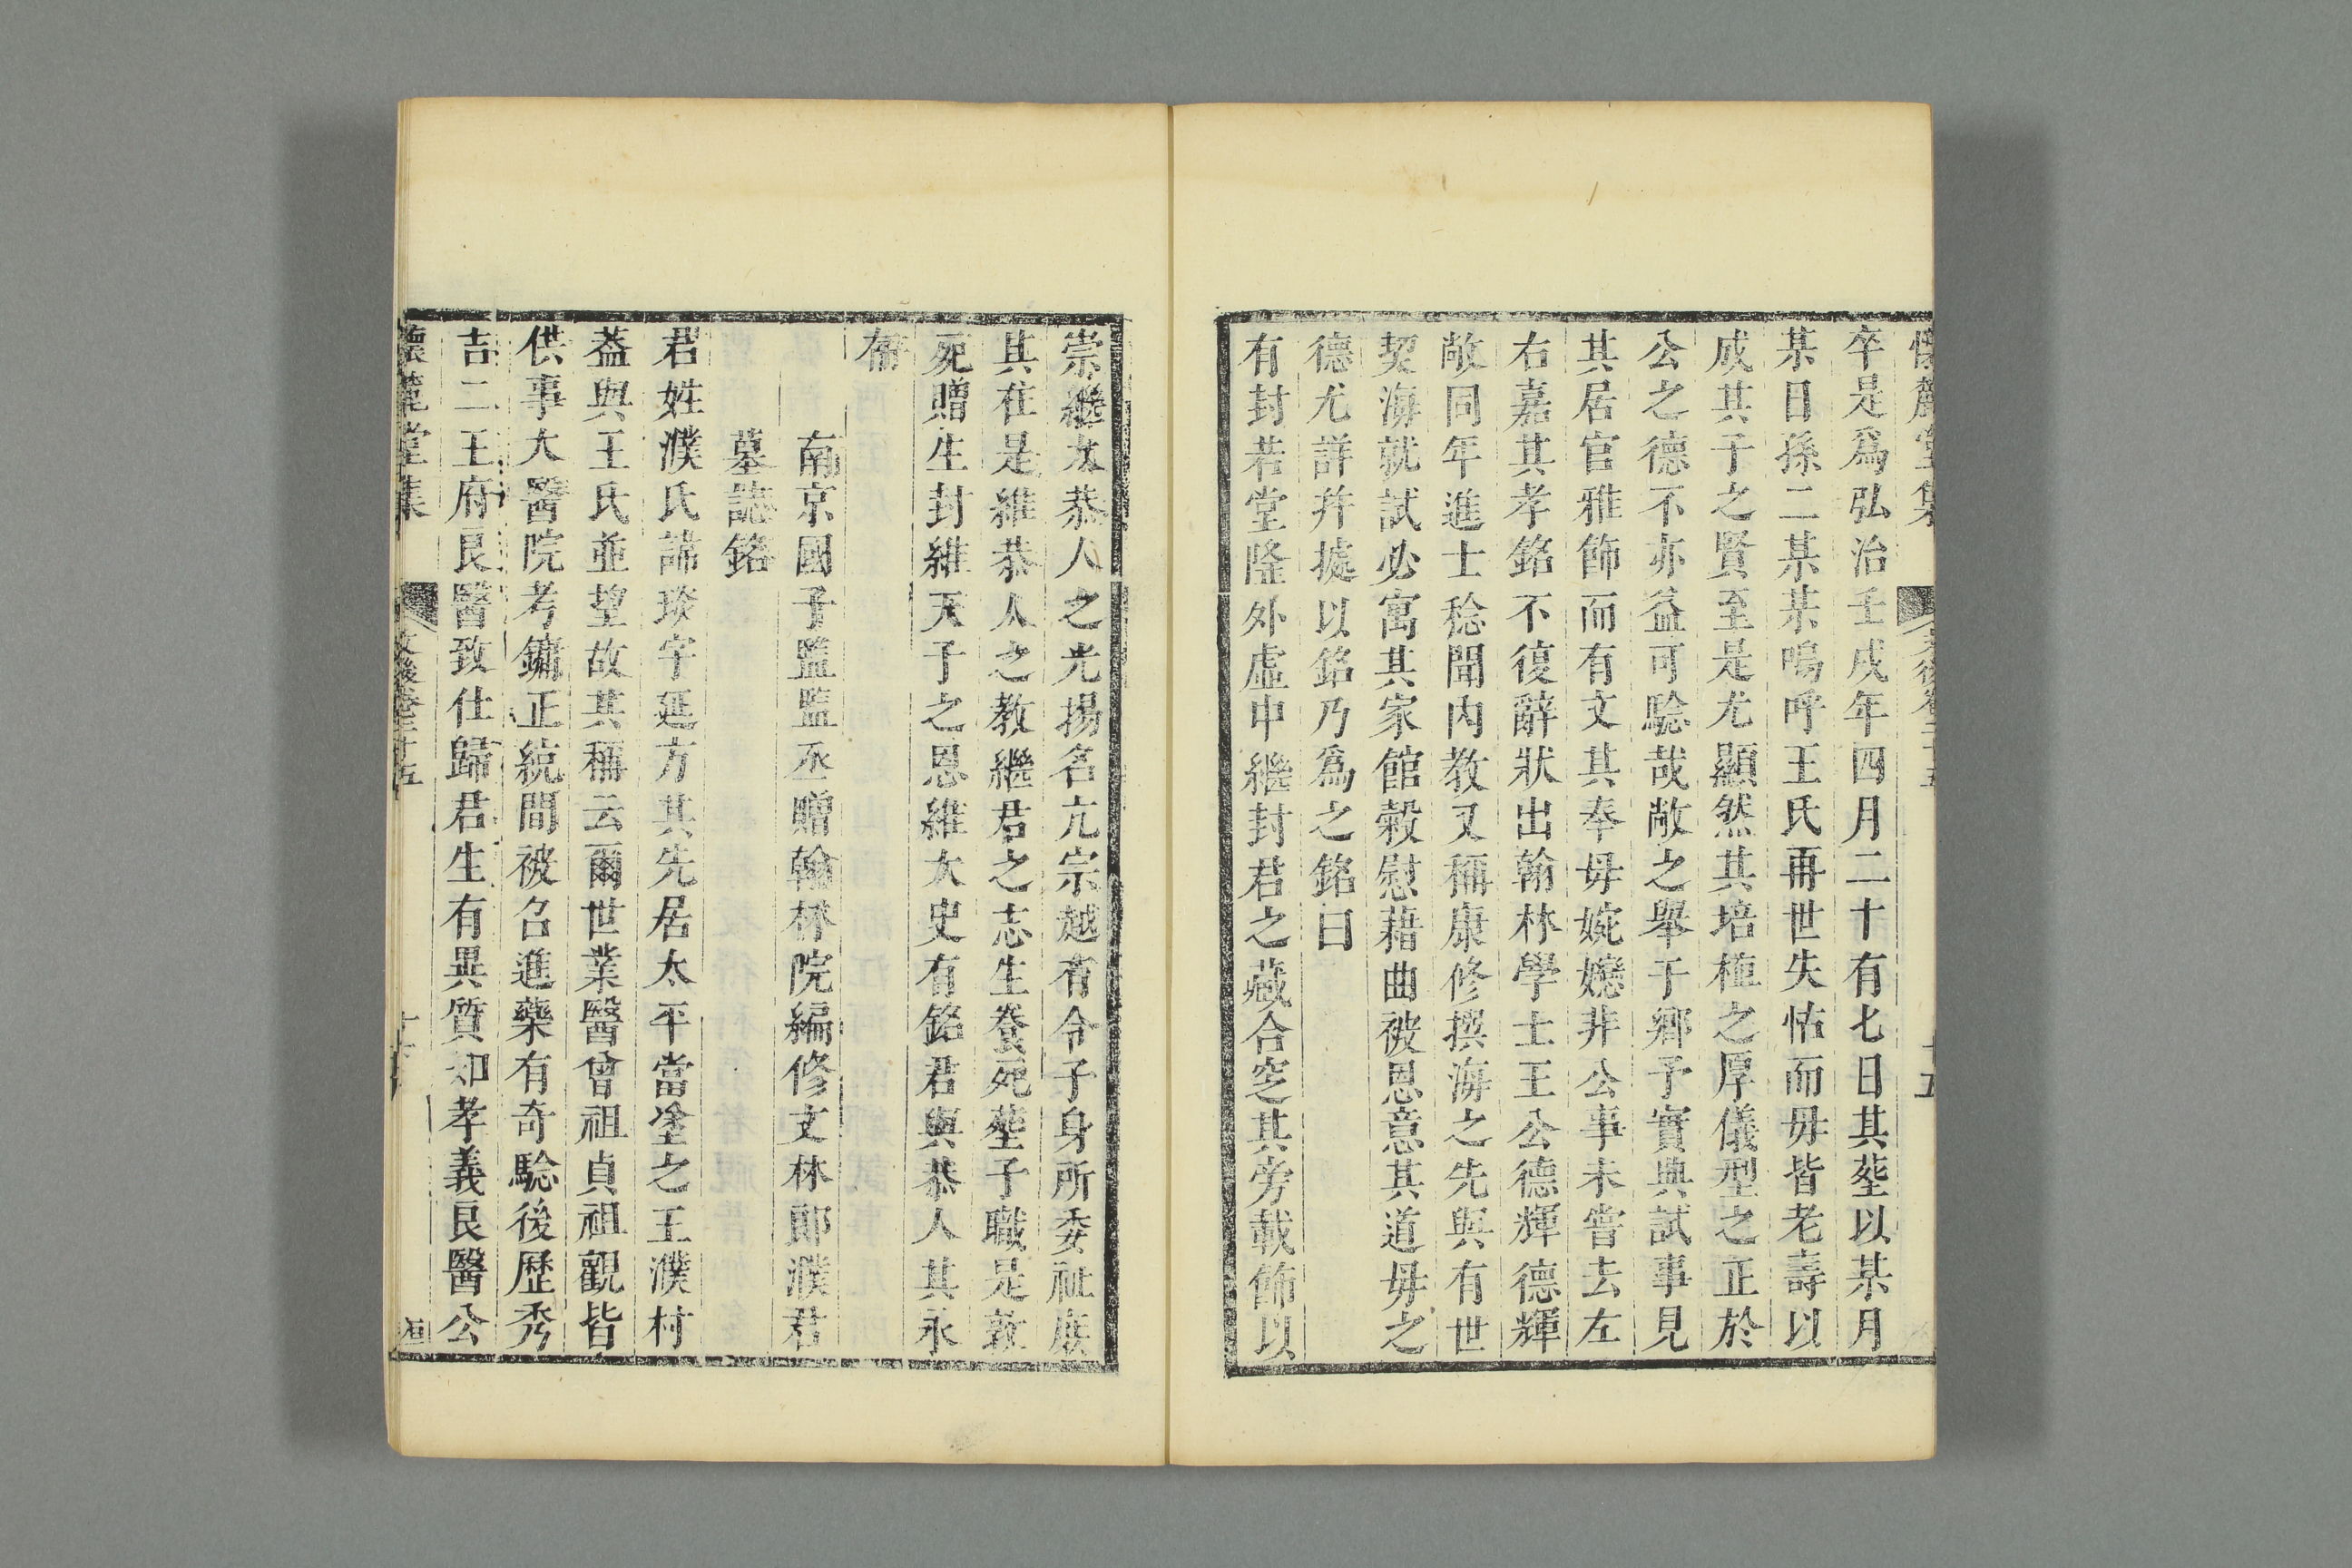 懷麓堂集 文後卷二十五 十五
卒是爲弘治壬戌年四月二十有七日其塟以某月
某日孫二某某嗚呼王氏再世失怙而毋皆老壽以
成其子之賢至是尤顯然其培植之厚儀型之正於
公之德不亦益可驗哉敞之舉于鄉予實典試事見
其居官雅飭而有文其奉毋婉嫕非公事未嘗去左
右嘉其孝銘不復辭狀出翰林學士王公德輝德輝
敞同年進士稔聞内教又稱康修撰海之先與有世
契海就試必寓其家館穀慰藉曲被恩意其道毋之
德尤詳并㨿以銘乃爲之銘曰
有封若堂隆外虛中繼封君之藏合窆其旁載飾以
崇繼太恭人之光揚名亢宗越有令子身所委祉族
其在是維恭人之教繼君之志生養死塟子職是敦
死贈生封維天子之恩維太史有銘君與恭人其永
存
南京國子監監丞贈翰林院編修文林郎濮君
墓誌銘
君姓濮氏諱琰字延方其先居太平當塗之王濮村
葢與王氏並望故其稱云爾世業醫曾祖貞祖觀皆
供事太醫院考鏞正統間被召進藥有奇驗後歷秀
吉二王府良醫致仕歸君生有異質却孝義良醫公
懷麓堂集 文後卷二十五 十六